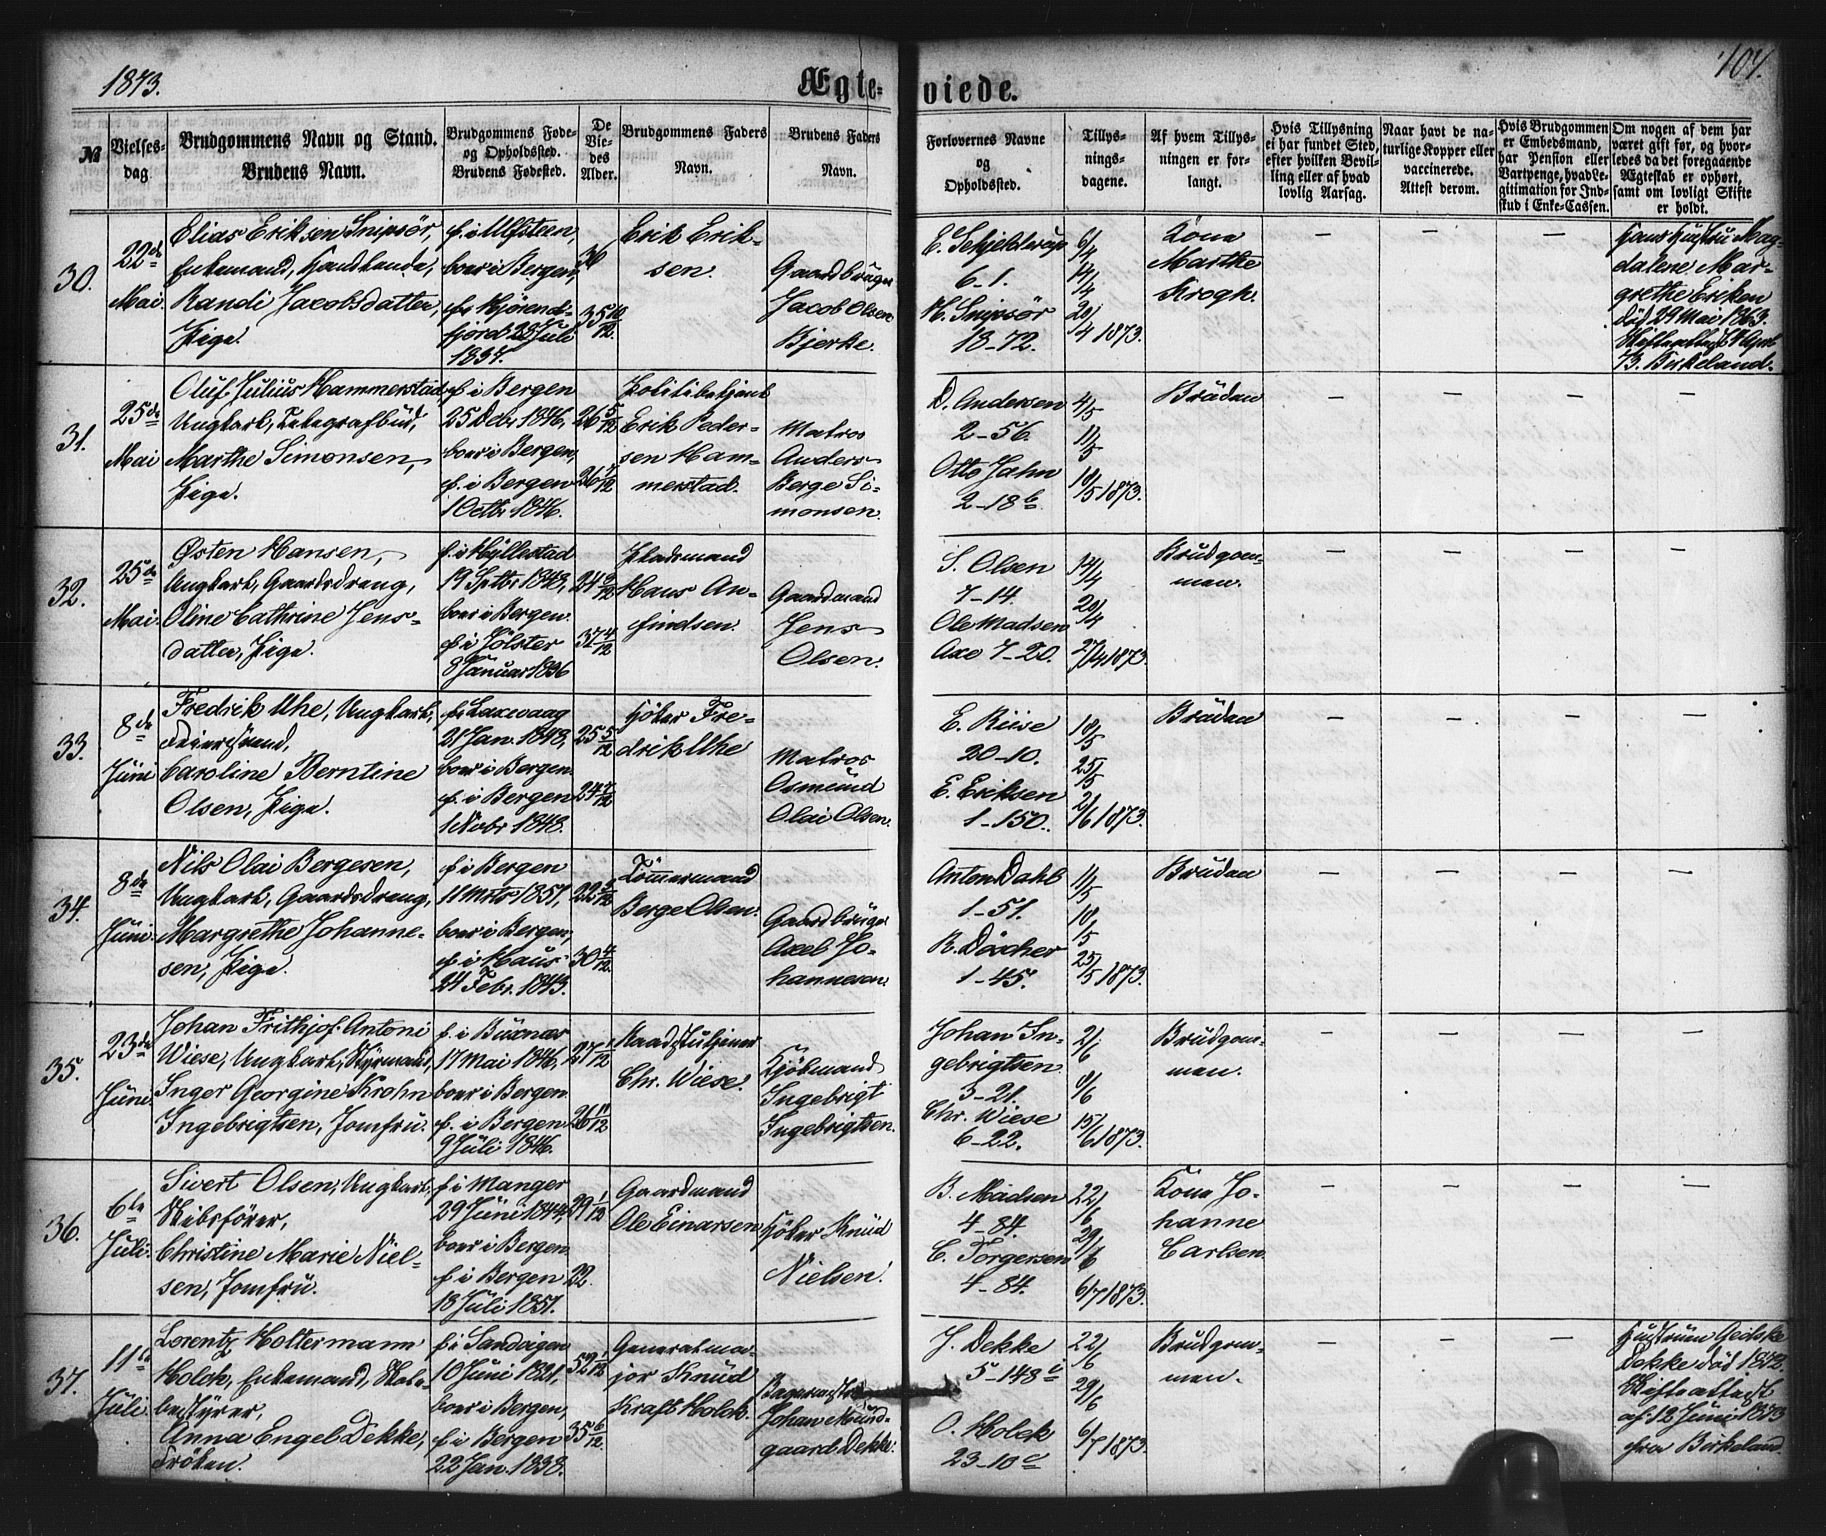 1873.
Ægte-
viede.
104.
№
Vielses-
dag
Brudgommens Navn og Stand.
Brudens Navn.
Brudgommens Føde-
og Opholdssted.
Brudens Fødested.
De
Vie-
des
Alder.
Brudgommens Faders
Navn.
Brudens Faders
Navn.
Forlovernes Navne
og
Opholdssted.
Tillys-
nings-
dagene.
Af hvem Tillys-
ningen er for-
langt.
Hvis Tillysning
ei har fundet Sted,
efter hvilken Bevil-
ling eller af hvad
lovlig Aarsag.
Naar havt de na-
turlige Kopper eller
vaccinerede.
Attest derom.
Hvis Brudgommen
er Embedsmand,
har Pension eller
Vartpenge, hvad Le-
gitimation for Ind-
skud i Enke-Cassen.
Om nogen af dem har
været gift før, og hvor-
ledes da det foregaaende
Ægteskab er ophørt,
samt om lovligt Skifte
er holdt.
30.
22de
Mai.
Elias Eriksen Snipsör,
Enkemand,
Randi Jacobsdatter,
Pige.
f. i Ulfsteen,
boer i Bergen,
f. i Hjörend-
fjord 28 Juli
1837.
36
35 10/12.
Erik Erik-
sen.
Gaardbruger
Jacob Olsen
Bjerke.
E. Schjelderup
6-1.
H. Snipsör
18-72.
6/4
14/4
20/4 1873.
Kone
Marthe
Krogh.
—
—
—
Hans Hustru Mag-
dalene Mar-
grethe Eriksen
död 29 Mai 1863.
Skifteattest
B. Birkeland.
31.
25de
Mai
Oluf Julius Hammerstad
Ungkarl, Telegrafbud,
Marthe Simonsen,
Pige.
f. i Bergen
25 Decbr 1846,
boer i Bergen,
f. i Bergen
1 Octbr 1846.
26 5/12
26 7/12
Politibetjent
Erik Peder-
sen Ham-
merstad.
Matros
Anders
Berge Si-
monsen.
D. Andersen
2-56.
Otto Jahn
2-18 b.
4/5
11/5
18/5 1873.
Bruden
—
—
—
—
32.
25de
Mai.
Østen Hansen,
Ungkarl, Gaardsdreng,
Oline Cathrine Jens-
datter, Pige.
f. i Hyllestad
19 Septbr 1848,
boer i Bergen.
f. i Jölster
8 Januar 1836
24 8/12
37 4/12
Pladsmand
Hans An-
findsen.
Gaardmand
Jens
Olsen.
S. Olsen
7-14.
Ole Madsen
Axe 7-20.
14/4
20/4
27/4 1873.
Brudgom-
men.
—
—
—
—
33.
8de
Juni
Fredrik Uhe, Ungkarl,
Caroline Berntine
Olsen, Pige.
f. i Laxevaag
21 Jan. 1848,
boer i Bergen.
f. i Bergen
1 Novbr 1848.
25 5/12
24 7/12
Höker Fre-
drik Uhe
Matros
Osmund
Olai Olsen.
E. Riise
20-10.
E. Eriksen
1-150.
18/5
25/5
2/6 1873.
Bruden
—
—
—
—
34.
8de
Juni.
Nils Olai Bergesen,
Ungkarl, Gaardsdreng,
Margrethe Johanne-
sen, Pige.
f. i Bergen
11 Mrts 1851,
boer i Bergen,
f. i Haus
24 Febr. 1843.
22 3/12
30 4/12.
Tömmermand
Berge Olsen.
Gaardbruger
Axel Jo-
hannesen.
Anton Dahl
1-51.
R. Döscher
1-45.
11/5
18/5
25/5 1873.
Bruden
—
—
—
—
35.
23de
Juni.
Johan Frithjof Antoni
Wiese, Ungkarl, Styrmand,
Inger Georgine Krohn
Ingebrigtsen, Jomfru.
f. i Buxnæs
17 Mai 1846,
boer i Bergen.
f. i Bergen
9 Juli 1846.
27 1/12
26 11/12
Raadstutjener
Chr. Wiese.
Kjöbmand
Ingebrigt
Ingebrigtsen.
Johan In-
gebrigtsen
3-21.
Chr. Wiese
6-22.
2/6
8/6
15/6 1873.
Brudgom-
men.
—
—
—
—
36.
6te
Juli.
Sivert Olsen, Ungkarl,
Skibsförer,
Christine Marie Niel-
sen, Jomfru.
f. i Manger
29 Juni 1844,
boer i Bergen.
f. i Bergen
18 Juli 1851.
29 1/12
22.
Gaardmand
Ole Einarsen
Höker Knud
Nielsen.
B. Madsen
4-84.
C. Torgersen
4-84.
22/6
29/6
6/7 1873.
Kone Jo-
hanne
Carlsen.
—
—
—
—
37.
11te
Juli.
Lorentz Holtermann
Holck, Enkemand, Skole-
bestyrer,
Anna Engel Dekke,
Fröken.
f. i Sandvigen
10 Juni 1821,
boer i Bergen,
f. i Bergen
22 Jan. 1838.
52 1/12
35 6/12
Generalma-
jor Knud
Kraft Holck.
Bagermester
Johan Mund-
gaard Dekke.
J. Dekke
5-148 c
O. Holck
23-10 c
22/6
29/6
6/7 1873.
Brudgom-
men.
—
—
—
Hustruen Gediske
Dekke död 1872.
Skifteattest
af 12 Juni 1873
fra Birkeland.